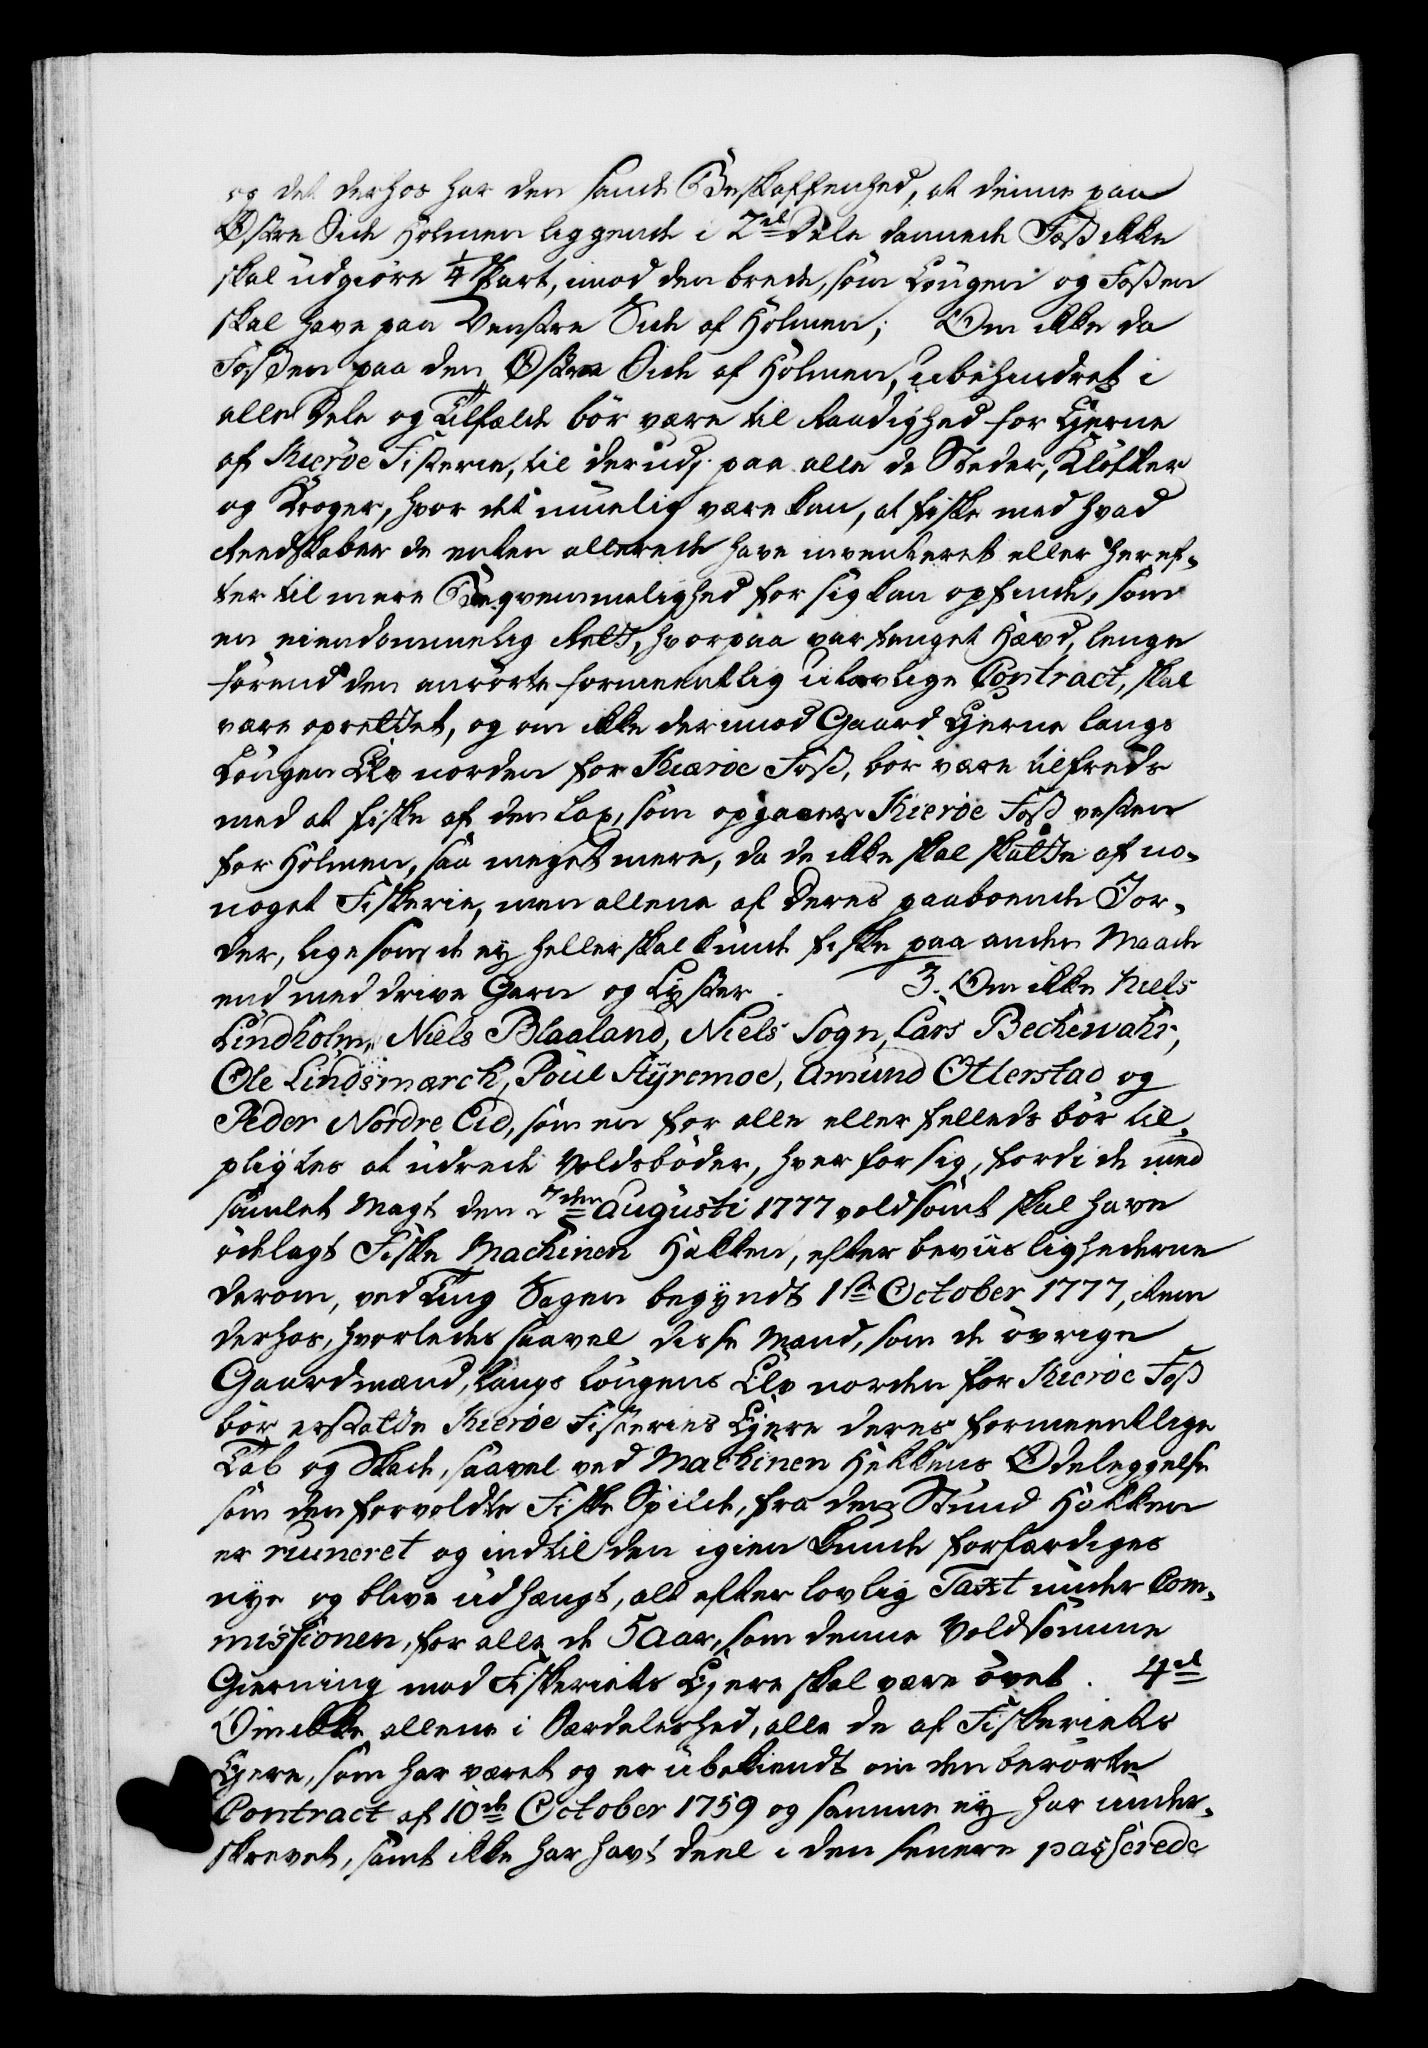 og det derhos har den sande Beskaffenhed, at denne paa
Østre Side Holmen liggende i 2de Dele dannede Foss ikke
skal udgiøre 1/4 Part, imod den brede, som Lougen og Fossen
skal have paa Venstre Side af Holmen; Om ikke da
Fossen paa den Østre Side af Holmen, ubehindret i
alle Dele og Tilfælde bör være til Raadighed for Ejerne
af Kieröe Fiskerie, til derudj paa alle de Steder, Kløfter
og Kroger, hvor det muelig være kan, at fiske med hvad
Reedskaber de enten allerede have inventeret eller heref-
ter til mere Beqvemmelighed for sig kan opfinde, som
en eiendommelig Rett, hvorpaa var fanget Hævd, lenge
förend den anrörte formeentlig ulovlige Contract, skal
være oprettet, og om ikke derimod Gaard Ejerne langs
Lougen Elv norden for Kiæröe Foss, bör være tilfreds
med at fiske af den Lax, som opgaaer Kieröe Foss vesten
for Holmen, saa meget mere, da de ikke skal skatte af no-
noget Fiskerie, men allene af deres paaboende Jor-
der, ligesom de ey heller skal kunde fiske paa anden Maade
end med drive Garn og Lyster. 3. Om ikke Niels
Lindholm, Niels Blaaland, Niels Sogn, Lars Bechewahr,
Ole Lindsmarch, Poul Styremoe, Amund Otterstad og
Peder Nordre Eid, som en for alle eller felleds bör til-
pligtes at udrede Voldsböder, hver for sig, fordi de med
samlet Magt den 7den Augusti 1777 voldsomt skal have
ödelagt Fiske Machinen Hakken, efter beviislighederne
derom, ved Ting Sagen begyndt 1ste October 1777, item
derhos, hvorledes saavel disse Mænd, som de övrige
Gaardmænd, langs Lougens Elv norden for Kieröe Foss
bör erstatte Kieröe Fiskeries Ejere deres formeentlige
Tab og Skade, saavel ved Machinen Hekkens Ödeleggelse
som den forvoldte Fiske Spilde, fra den Stund Hakken
er ruineret og indtil den igien kunde forfærdiges
nye og blive udhængt, alt efter lovlig Taxt under Com-
missionen, for alle de 5 Aar, som denne Voldsomme
Gierning mod Fiskeriets Ejere skal være övet. 4de
Om ikke allene i Særdeleshed, alle de af Fiskeriets
Ejere, som har været og er ubekiendt om den berörte
Contract af 10de October 1759 og samme ey har under-
skrevet, samt ikke har havt deel i den senere passerede